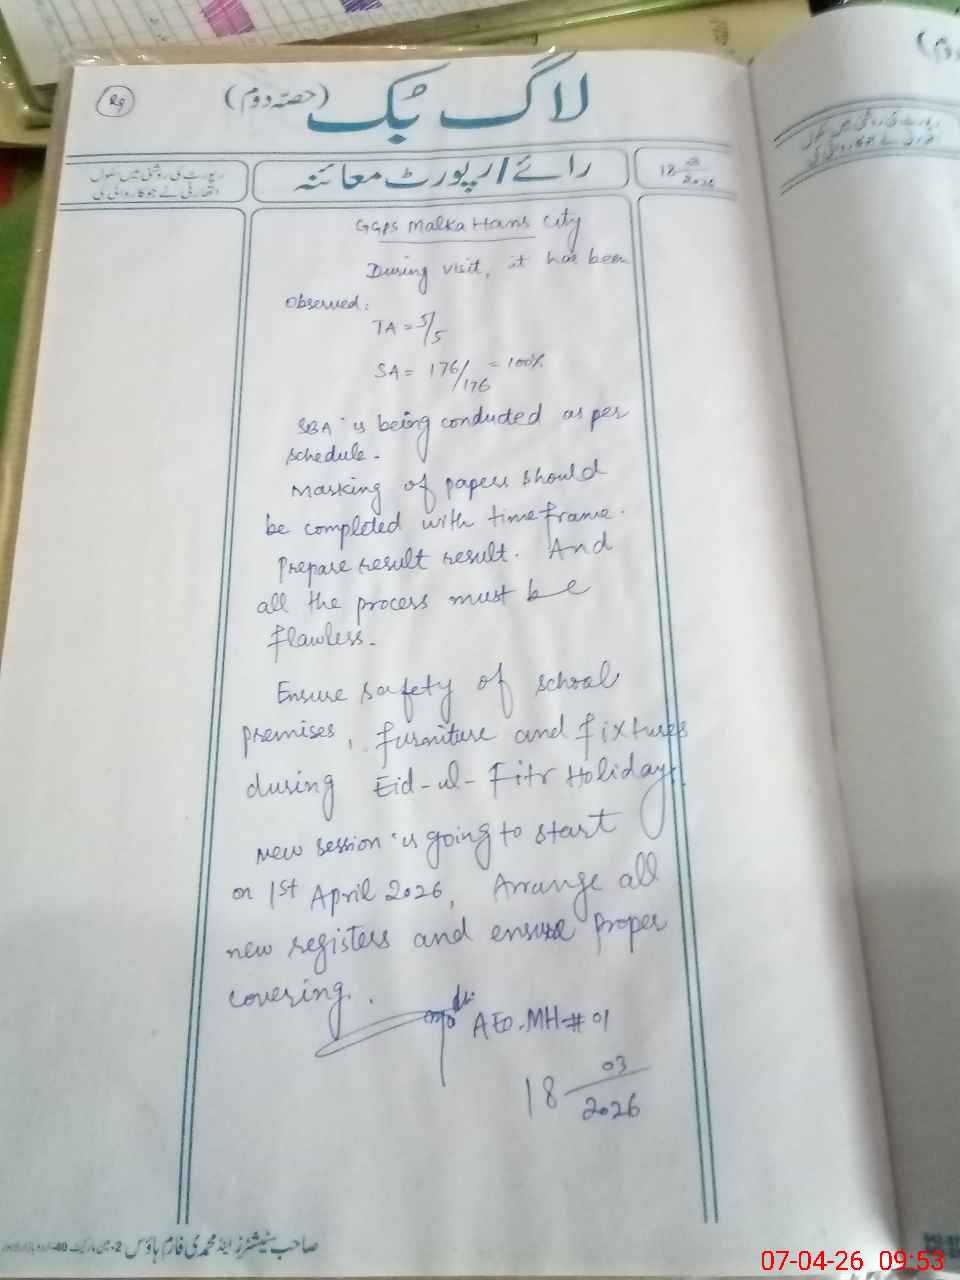 29
لاگ بک (حصّہ دوم)
رپورٹ کی روشنی میں سکول
اتھارٹی نے جو کاروائی کی
رائے/رپورٹ معائنہ
18 03/2026
GGPS Malka Hans City
During visit, it has been
observed:
TA = 5/5
SA = 176/176 = 100%
SBA is being conducted as per
schedule.
Marking of papers should
be completed with time frame.
Prepare result result. And
all the process must be
flawless.
Ensure safety of school
premises, furniture and fixtures
during Eid-ul-Fitr Holidays.
New session is going to start
on 1st April 2026, Arrange all
new registers and ensure proper
covering.
AEO-MH-#01
18 03/2026
صاحب سٹیشنرز اینڈ محمدی فارم ہاؤس
07-04-26 09:53